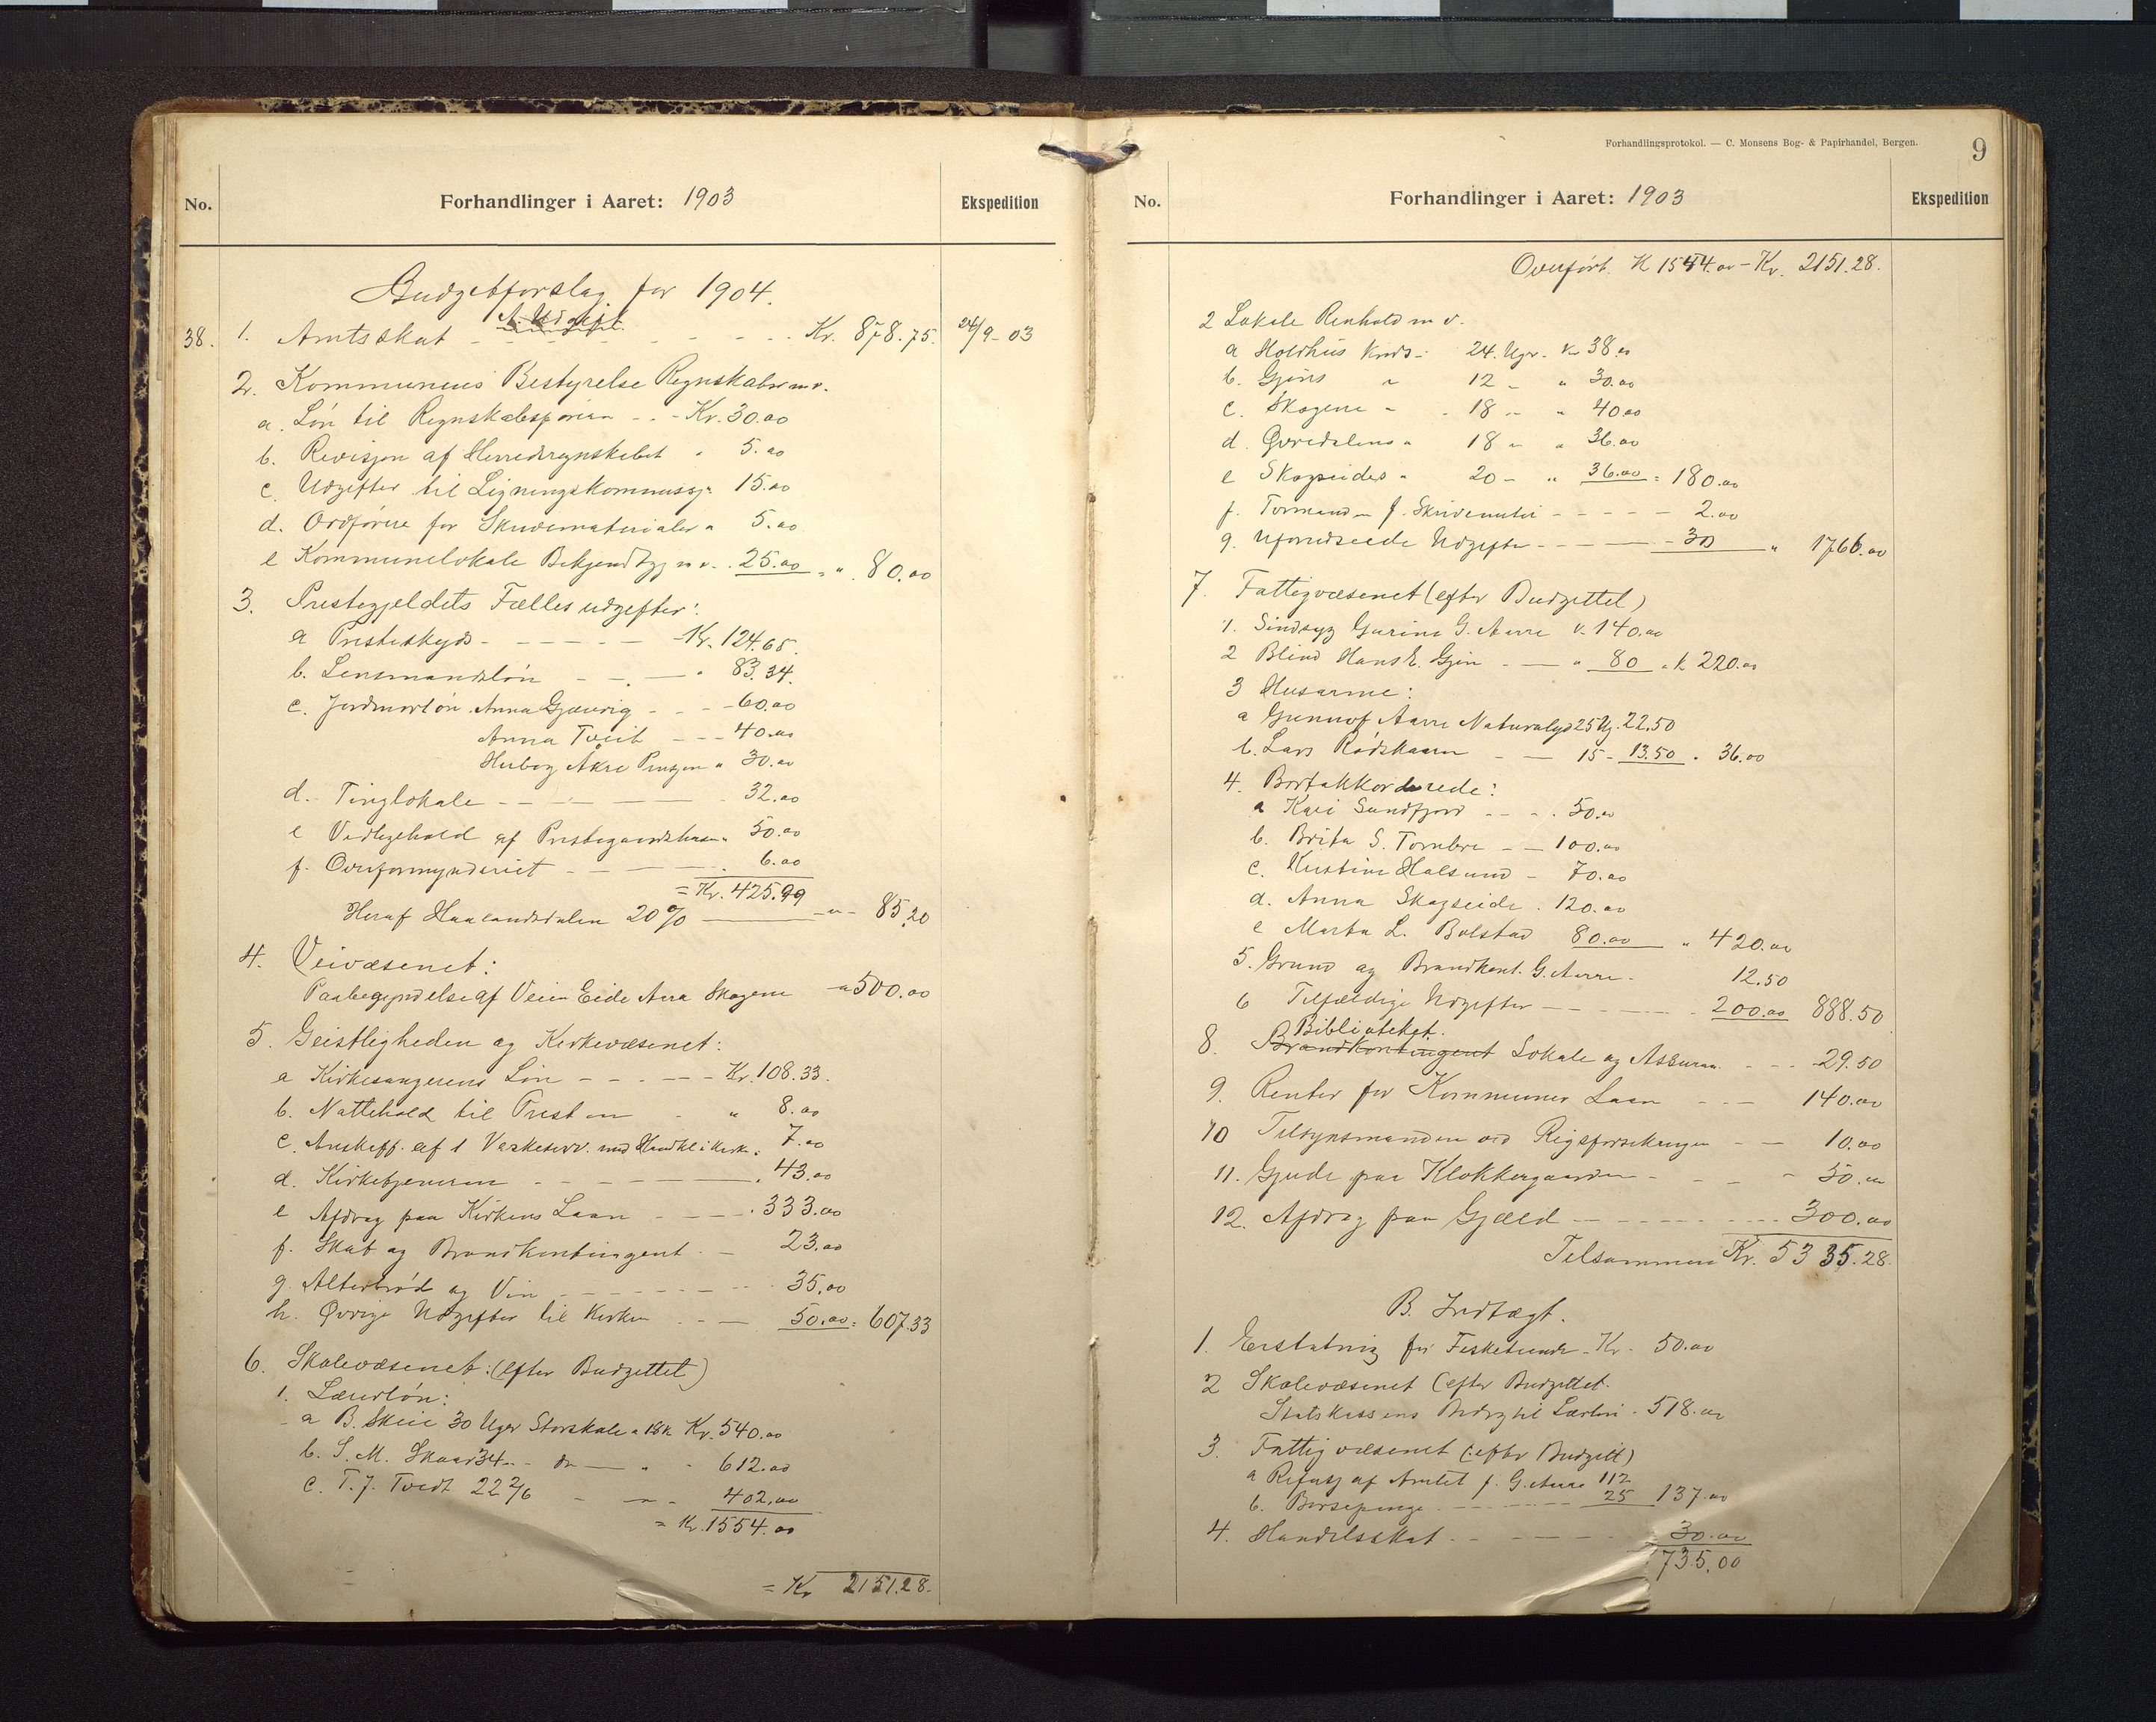 No. Forhandlinger i Aaret: 1903 Ekspedition
Budgetforslag for 1904.
A. Udgift.
38. 1. Amtsskat - - - - Kr. 878.75. 24/9-03
2. Kommunens Bestyrelse Regnskabet m v.
a. Løn til Regnskabsføreren - - Kr. 30.00
b. Revisjon af Herredsregnskabet " 5.00
c. Udgifter til Ligningskommissj. " 15.00
d. Ordførere for Skrivematerialer " 5.00
e Kommunelokale Bekjendtgj m v. . 25.00 = " 80.00
3. Prestegjeldets Fællesudgifter:
a Presteskyds - - - - - Kr. 124.65.
b. Lensmandsløn - - - " 83.34.
c. Jordmorløn. Anna Gjævrig - - - 60.00
Anna Tveit - - - 40.00
Herborg Åkre Pensjon " 30.00
d. Tinglokale - - - - - 32.00
e Vedligehold af Prestegaardshusene " 50.00
f. Overformynderiet - - - - 6.00
= Kr. 425.99
Heraf Haalandsdalen 20% - " - 85.20
4. Veivæsenet:
Paabegyndelse af Veien Eide Aura Skogene - " 500.00
5. Geistligheden og Kirkevæsenet:
a Kirkesangerens Løn - - - - - Kr. 108.33.
b. Nattehold til Presten - " 8.00
c. Anskaff. af 1 Vaskeserv. med Haandkl i Kirk. " 7.00
d. Kirketjeneren - - - - . 43.00
e Afdrag paa Kirkens Laan - - - . 333.00
f. Skat og Brandkontingent. - 23.00
g. Alterbrød og Vin - - - - - 35.00
h. Øvrige Udgifter til Kirken . - - 50.00 = 607.33
6. Skolevæsenet: (efter Budgettet)
1. Lærerløn:
a B. Skeie 30 Uger Storskole a 18 k Kr. 540.00
b. S. M. Skaar 34 " - do - " - 612.00
c. T. J. Tvedt 22 2/6 - " - 402.00
= Kr. 1554.00
= Kr 2151.28.
Forhandlingsprotokol. — C. Monsens Bog- & Papirhandel, Bergen.
9
No. Forhandlinger i Aaret: 1903 Ekspedition
Overført. K 1554.00 - Kr. 2151.28.
2 Lokale Renhold m v.
a Holdhus Kreds - 24. Uger - Kr 38.00
b. Gjøns " 12 - " 30.00
c. Skogene " - 18 - " 40.00
d. Øvredalens " 18 " " 36.00
e Skogseides " 20 - " 36.00 = 180.00
f. Formanden f. Skrivemater - - - - - 2.00
g. Uforudseede Udgifter - - - 30 " 1766.00
7. Fattigvæsenet (efter Budgettet)
1. Sindssyg Gurine G. Aarre K. 140.00
2 Blind Hans E. Gjøn - - " 80 " k 220.00
3 Husarme:
a Gunnof Aarre Naturalyd 25 Ug. 22.50
b. Lars Rødskaaren - - 15 - 13.50 . 36.00
4. Bortakkorderede:
a Kari Sundfjord - - - . 50.00
b. Brita S. Tombre - - 100.00
c. Kristine Holsund - 70.00
d. Anna Skogseide . 120.00
e Marta L. Bolstad 80.00 " 420.00
5. Grund og Brandkont. G. Aarre - 12.50
6 Tilfældige Udgifter - - - - 200.00 888.50
Biblioteket.
8. Brandkontingent Lokale og Assuran. - - - 29.50
9. Renter for Kommunens Laan - - - 140.00
10 Tilsynsmanden ved Rigsforsikringen - - 10.00
11. Gjerde paa Klokkergaarden - - - - 50.00
12. Afdrag paa Gjæld - - - - - 300.00
Tilsammen Kr. 5335.28.
B. Indtægt.
1. Erstatning for Fisketiende - Kr - 50.00
2 Skolevæsenet (efter Budgettet.
Statskassens Bidrag til Lærløn - 518.00
3. Fattigvæsenet (:efter Budgett)
a Refusj af Amtet f. G. Aarre 112
b. Bøssepenge - - - - 25 137.00
4. Handelsskat - - - - - 30.00
735.00